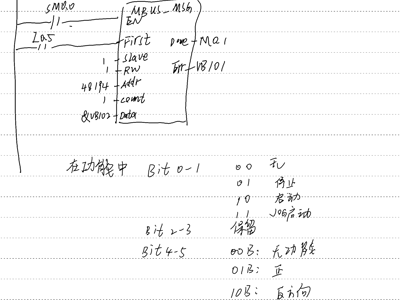 SM0.0
MBUS_MSG
EN
I0.5
First Done MQ1
1 Slave
1 RW Err VB101
48194 Addr
1 count
&VB102 Data
在功能中 Bit 0-1 00 无
01 停止
10 启动
11 JOG启动
Bit 2-3 保留
Bit 4-5 00B: 无功能
01B: 正
10B: 反方向